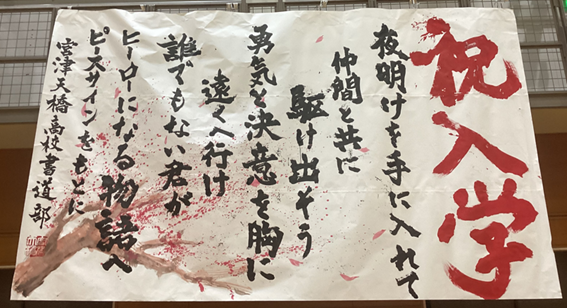 祝入学
夜明けを手に入れて
仲間と共に
駆け出そう
勇気と決意を胸に
遠くへ行け
誰でもない君が
ヒーローになる物語へ
ピースサインをもとに
宮津天橋高校書道部